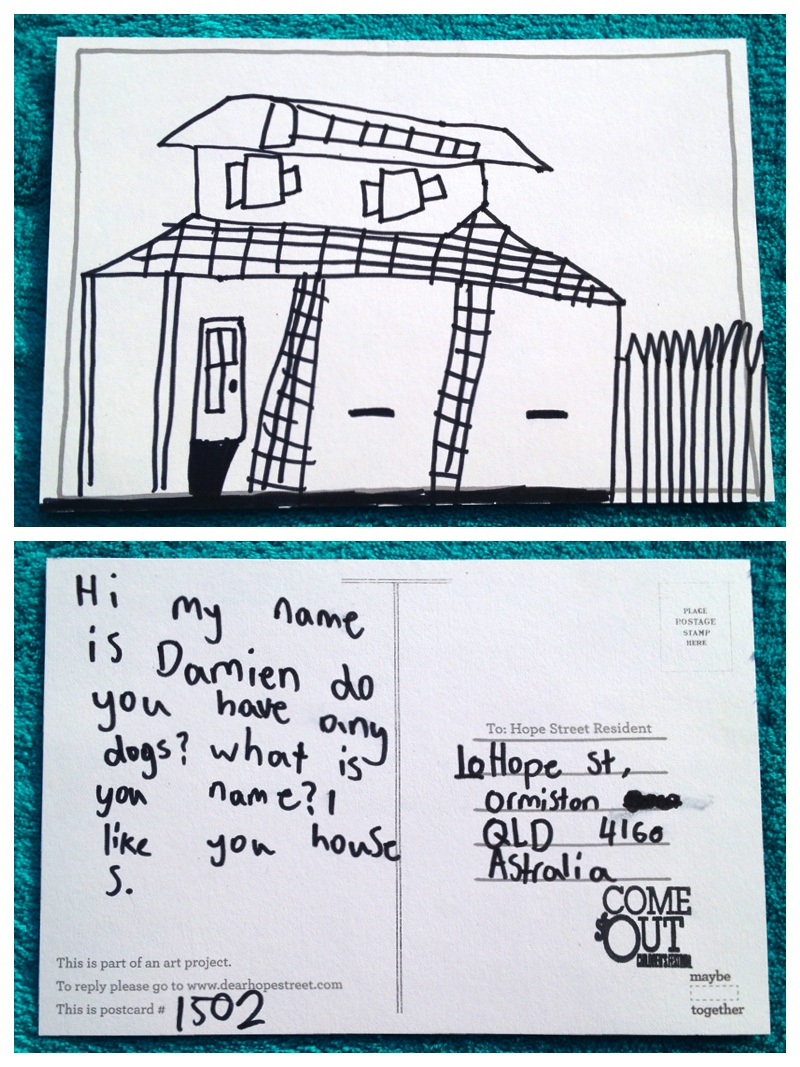 Hi my name
is Damien do
you have any
dogs? what is
you name? I
like you house
s.
This is part of an art project.
To reply please go to www.dearhopestreet.com
This is postcard # 1502
PLACE
POSTAGE
STAMP
HERE
To: Hope Street Resident
Hope St,
Ormiston
QLD 4160
Astralia
COME
OUT
CHILDREN'S FESTIVAL
maybe
together